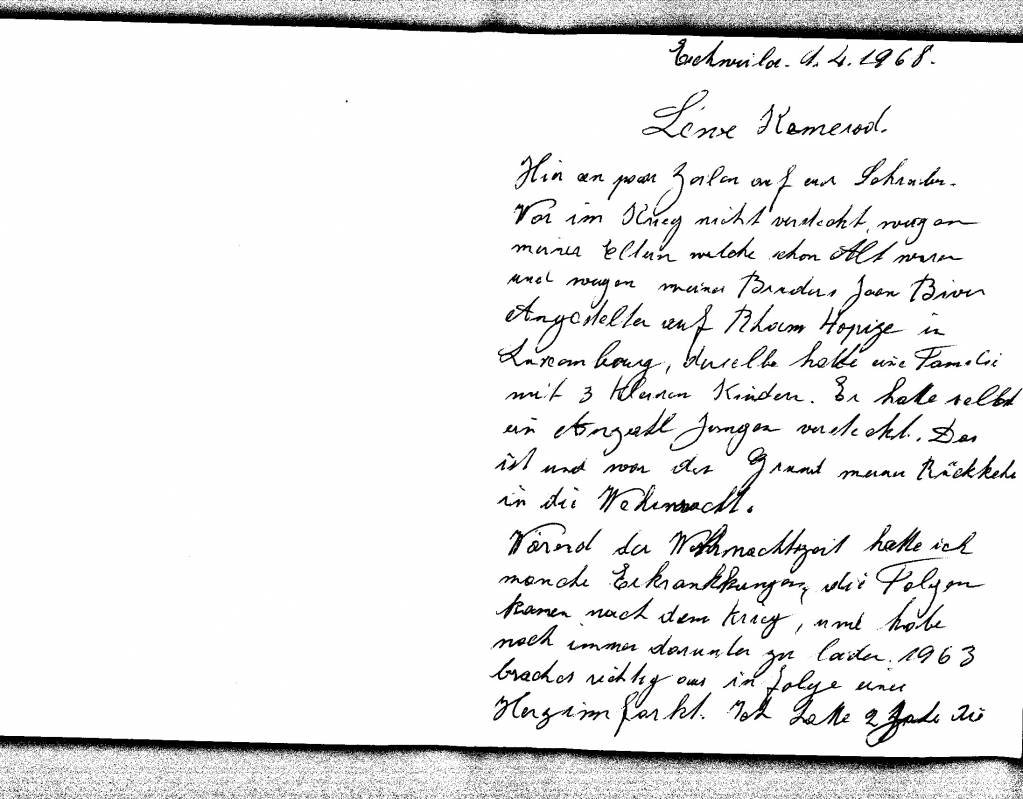 Eschweiler. d. 4. 1968.
Liewe Kamerad.
Hier en paar Zeilen auf eur Schreiben.
War im Krieg nicht versteckt, wegen
meiner Eltern welche schon Alt waren
und wegen meines Bruders Jean Biver
Angestellter auf Rham Hopize in
Luxembourg, derselbe hatte eine Familie
mit 3 kleinen Kinder. Er hatte selbst
ein Anzahl Jungen versteckt. Das
ist und war der Grund meiner Rückkehr
in die Wehrmacht.
Wärend der Wehrmachtzeit hatte ich
manche Erkrankkungen, die Folgen
kamen nach dem Krieg, und habe
noch immer darunter zu leiden. 1963
braches richtig aus in folge eines
Herzinnfarkt. Ich hatte 2 die